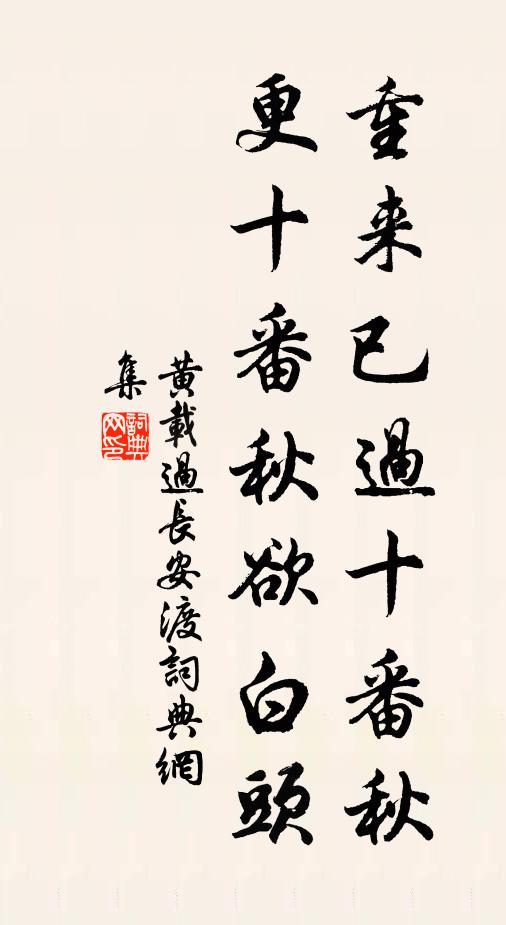 重来已過十番秋
更十番秋欲白頭
黄載過長安渡詞典網
集
詞典
网印